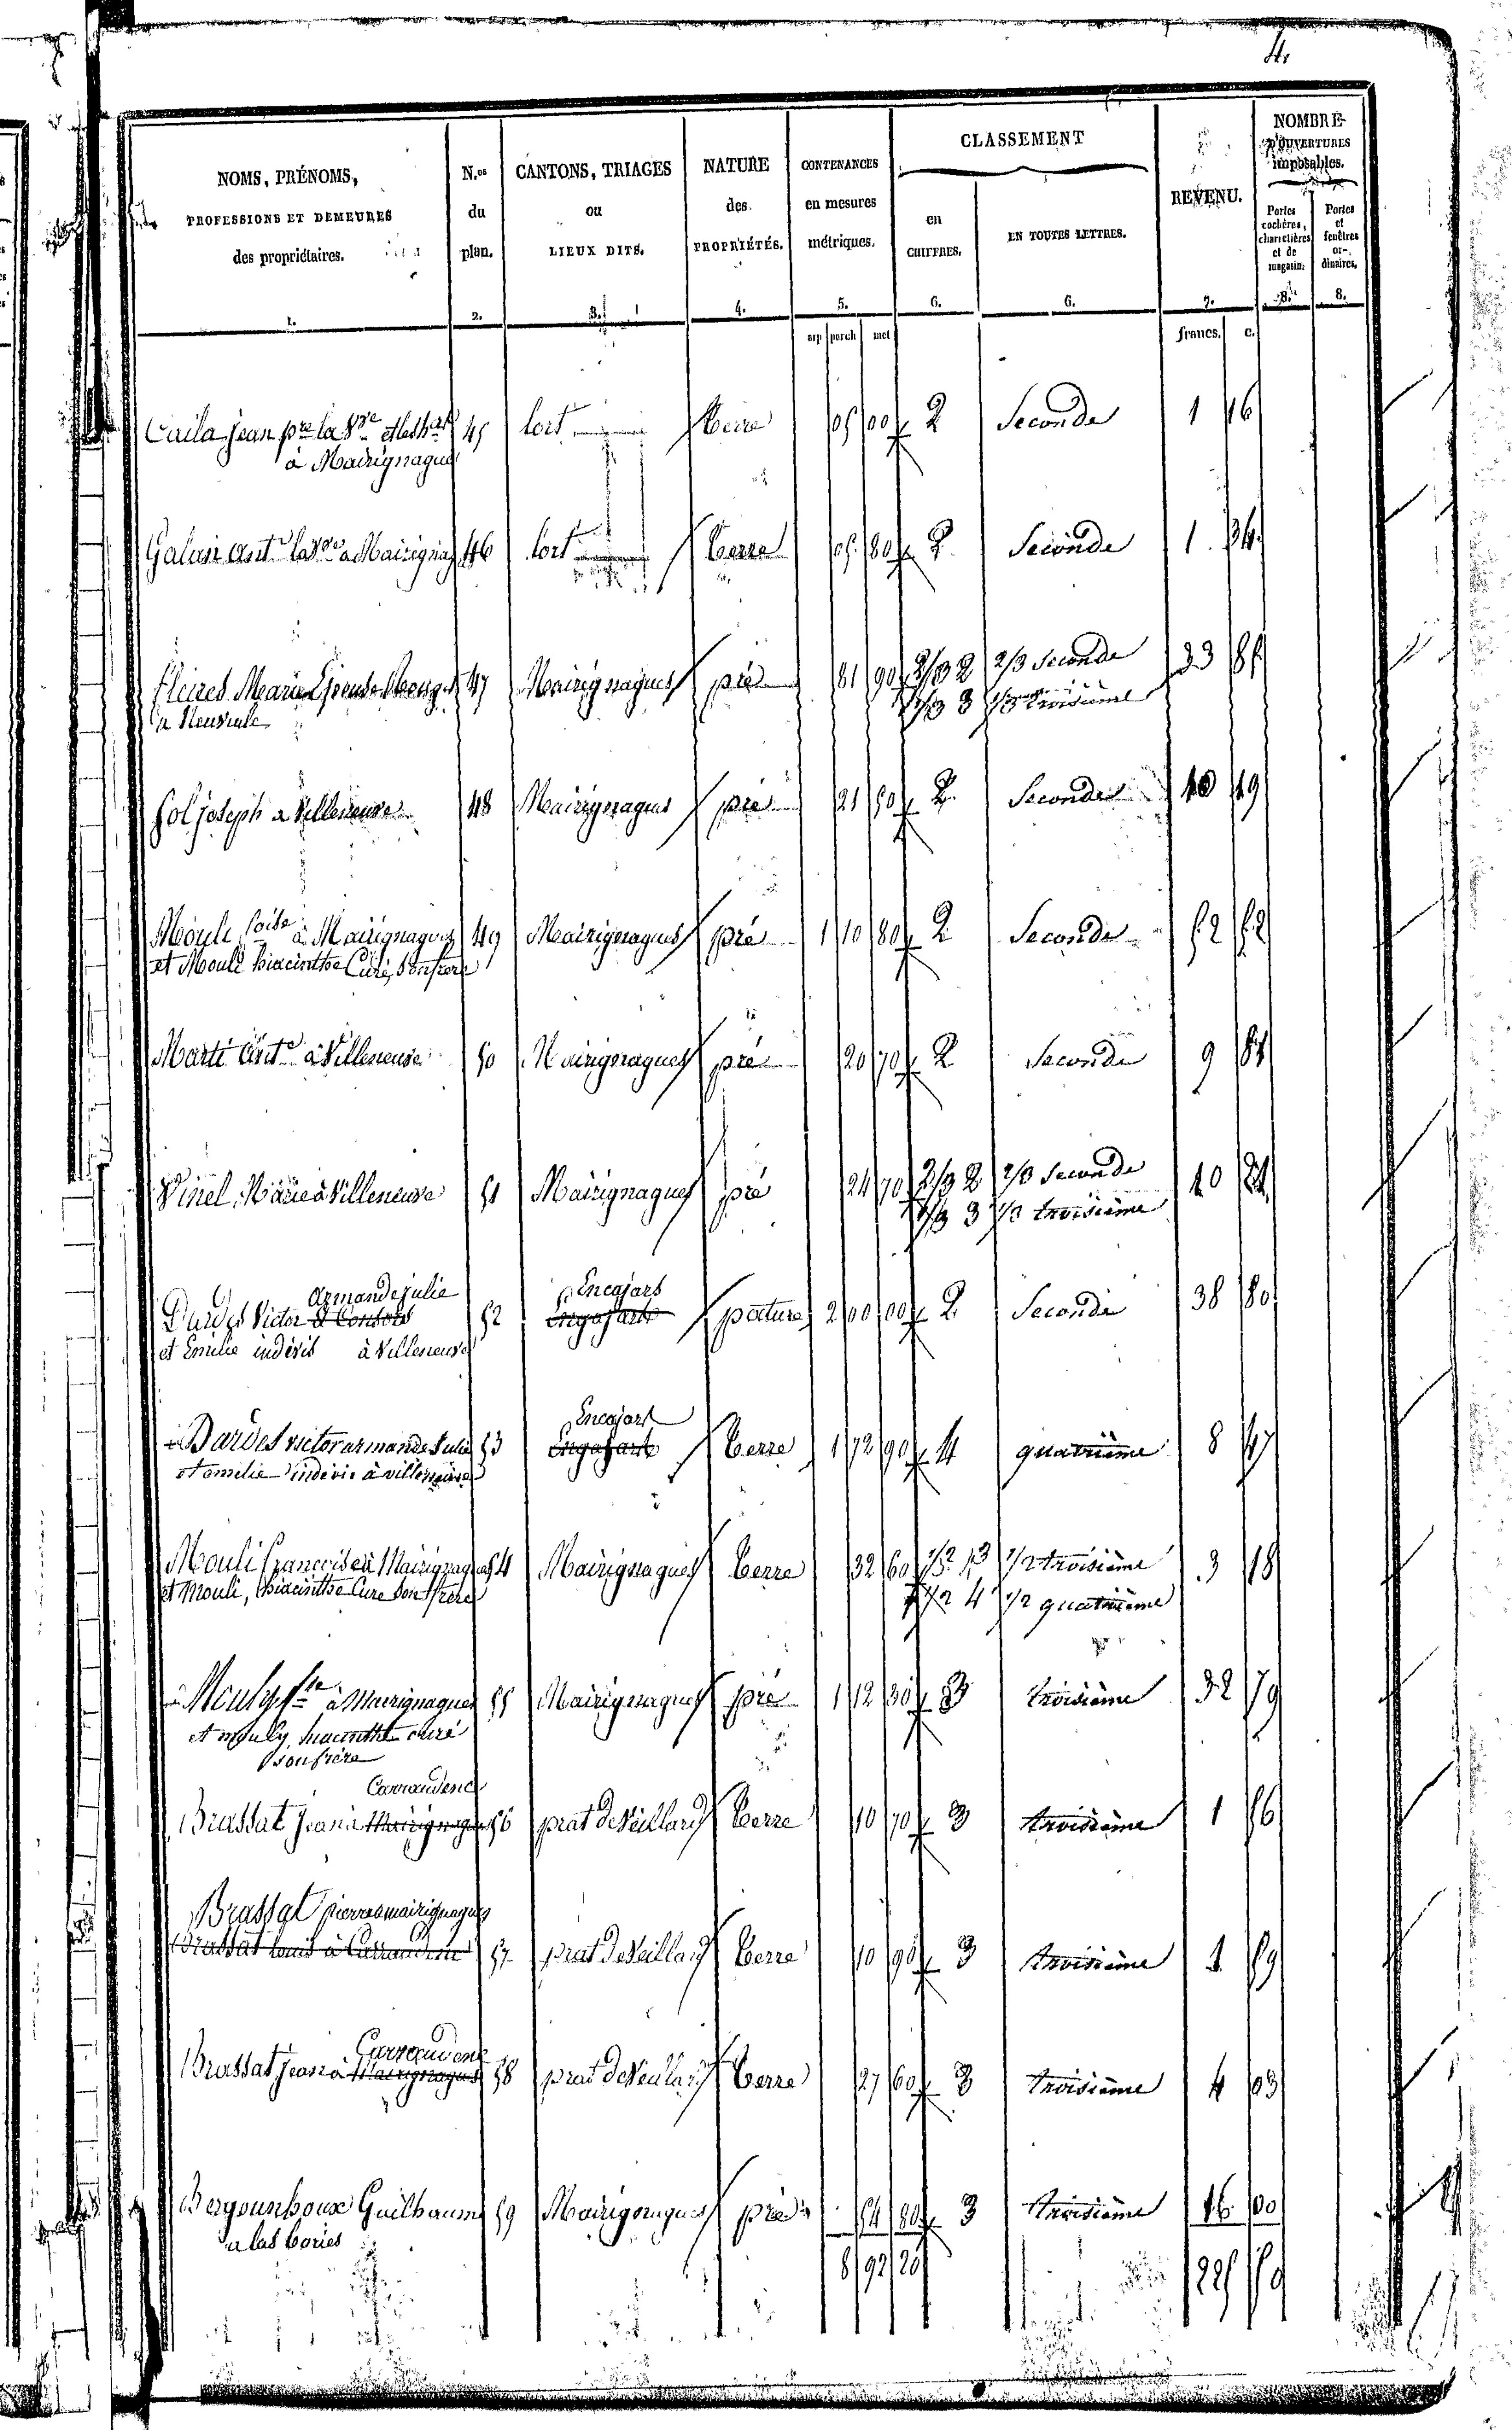 4.
NOMS, PRÉNOMS,
PROFESSIONS ET DEMEURES
des propriétaires.
1.
N.os
du
plan.
2.
CANTONS, TRIAGES
ou
LIEUX DITS.
3.
NATURE
des
PROPRIÉTÉS.
4.
CONTENANCES
en mesures
métriques.
5.
CLASSEMENT
en
CHIFFRES.
6.
EN TOUTES LETTRES.
6.
REVENU.
7.
NOMBRE
D'OUVERTURES
imposables.
Portes
cochères,
charretières
et de
magasin.
8.
Portes
et
fenêtres
or-
dinaires.
8.
arp perch met
francs. c.
Cuila jean pre la Vve 45 lort terre 05 00 2 Seconde 1 16
à Mairignagues
Galan Ante la Vve à Mairignag 46 lort terre 05 80 2 Seconde 1 34
fleires Marie 47 Mairignagues pré 81 90 2/3 2 2/3 Seconde 33 85
1/3 3 1/3 troisième
Sol joseph a Villeneuve 48 Mairignagues pré 21 50 2 Seconde 10 19
Mouli soise à Mairignagues 49 Mairignagues pré 1 10 80 2 Seconde 52 52
et Mouli hiacinthe Curé, son frere
Marti Ante à Villeneuve 50 Mairignagues pré 20 70 2 Seconde 9 81
Vinel, Marie à Villeneuve 51 Mairignagues pré 24 70 2/3 2 2/3 Seconde 10 21
1/3 3 1/3 troisième
Armande julie Encajars
Dardes Victor & Consors 52 Engajarts pature 2 00 00 2 Seconde 38 80
et Emilie indivis à Villeneuve
Encajars
Bardes victor armande Julie 53 Engajarts terre 1 72 90 4 quatrième 8 47
et amelie indivis à villeneuve
Mouli francoise à Mairignagues 54 Mairignagues terre 32 60 1/2 3 1/2 troisième 3 18
et Mouli, hiacinthe Curé son frere 1/2 4 1/2 quatrième
Mouly fse à Mairignagues 55 Mairignagues pré 1 12 30 3 troisième 32 79
et Mouly hiacinthe curé
son frère
Carrandenc
Brassat Jean à Mairignagues 56 prat de Veillard terre 10 70 3 troisième 1 56
Brassat pierre a mairignagues
Brassat louis à Carrandenc 57 prat de Veillard terre 10 90 3 troisième 1 59
Carrandenc
Brassat Jean à Mairignagues 58 prat de Veillard terre 27 60 3 troisième 4 03
Bergounhoux Guilhaume 59 Mairignagues pré 54 80 3 troisième 16 00
a las bories
8 92 20 225 59